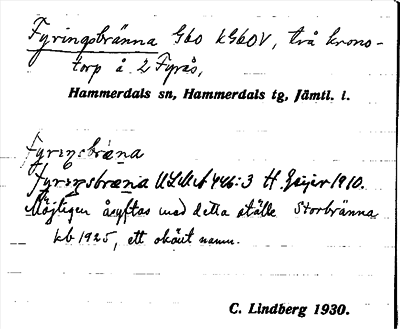 Fyringsbränna Gbo kGBOV, två krono-
torp å 2 Fyrås,
Hammerdals sn, Hammerdals tg, Jämtl. l.
Fyringsbræna
Fyringsbræna ULMA 446:3 H. Geijer 1910.
Möjligen åsyftas med detta ställe Storbränna
kb 1925, ett okänt namn.
C. Lindberg 1930.